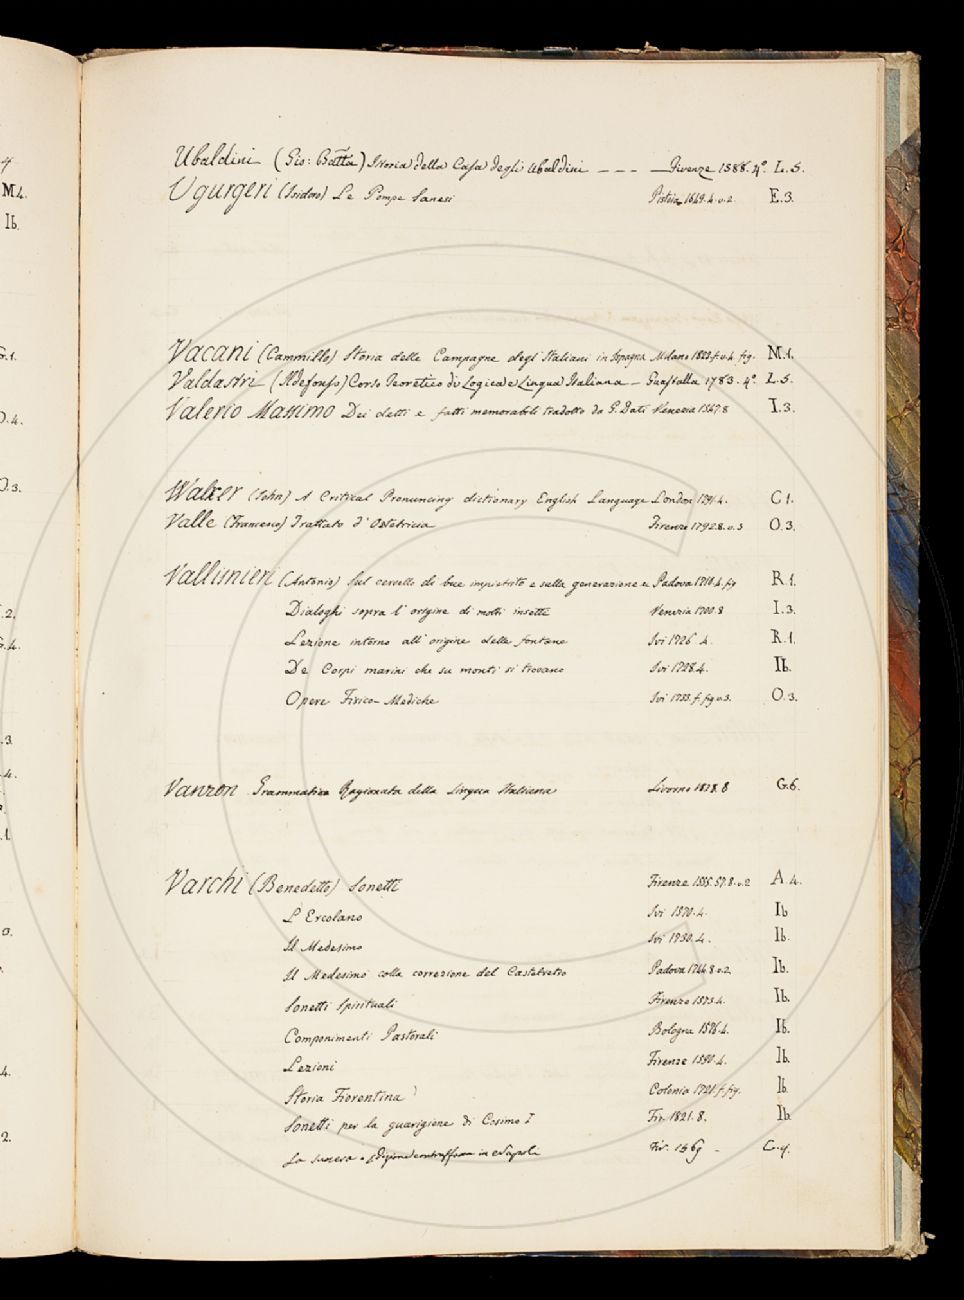 Ubaldini (Gio: Batta) Istoria della Casa degli Ubaldini - - - Firenze 1588. 4º. L. 5.
Ugurgeri (Isidoro) Le Pompe Sanesi Pistoia 1649. 4. v. 2. E. 3.
Vacani (Cammillo) Storia delle Campagne degl'Italiani in Ispagna Milano 1823. f. v. 4. fig. M. 1.
Valdastri (Ildefonso) Corso Teoretico di Logica e Lingua Italiana - Guastalla 1783. 4º. L. 5.
Valerio Massimo Dei detti e fatti memorabili tradotto da G. Dati Venezia 1547. 8 I. 3.
Walker (John) A Critical Pronuncing dictionary English Language London 1791. 4. C 1.
Valle (Francesco) Trattato d'Ostetricia Firenze 1792. 8. v. 3 O. 3.
Vallisnieri (Antonio) Sul cervello di bue impietrito e sulla generazione Padova 1710. 4. fig R. 1.
Dialoghi sopra l'origine di molti insetti Venezia 1700. 8 I. 3.
Lezione intorno all'origine delle fontane Ivi 1726 4. R. 1.
De Corpi marini che su monti si trovano Ivi 1728. 4. Ib.
Opere Fisico-Mediche Ivi 1733. f. fig v. 3. O. 3.
Vanzon Grammatica Ragionata della Lingua Italiana Livorno 1828. 8 G. 6.
Varchi (Benedetto) Sonetti Firenze 1555. 57. 8. v. 2 A. 4.
L'Ercolano Ivi 1570. 4. Ib
Il Medesimo Ivi 1730. 4. Ib.
Il Medesimo colla correzione del Castelvetro Padova 1744. 8. v. 2. Ib.
Sonetti Spirituali Firenze 1573. 4. Ib.
Componimenti Pastorali Bologna 1576. 4. Ib.
Lezioni Firenze 1590. 4. Ib.
Storia Fiorentina Colonia 1721. f. fig. Ib.
Sonetti per la guarigione di Cosimo I Fir. 1821. 8. Ib.
La Suocera - Edizione contraffatta in Napoli Fir. 1569 - G. 4.